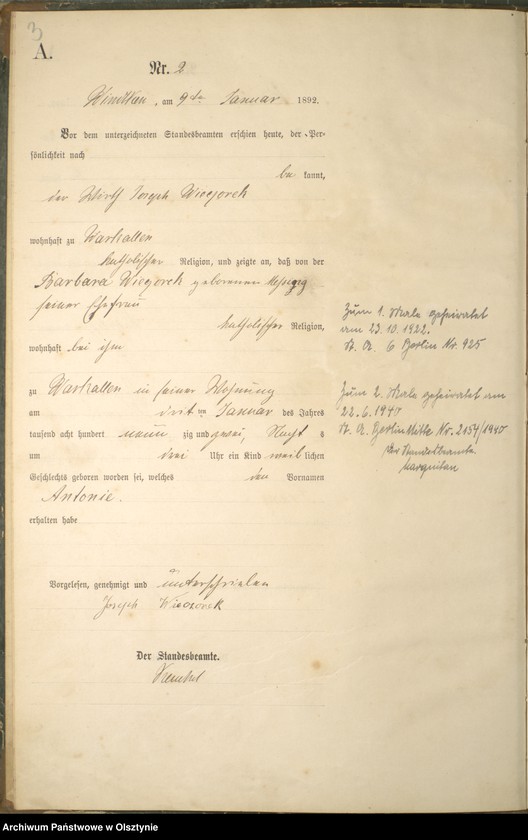 3
A.
Nr. 2
am 9ten Januar 1892.
Vor dem unterzeichneten Standesbeamten erschien heute, der Per-
sönlichkeit nach
be kannt,
der Wirth Joseph Wieczorek
wohnhaft zu Warkallen
katholischer Religion, und zeigte an, daß von der
Barbara Wieczorek geborenen
seiner Ehefrau
katholischer Religion,
wohnhaft bei ihm
zu Warkallen in seiner Wohnung
am drit ten Januar des Jahres
tausend acht hundert neun zig und zwei, Nacht s
um drei Uhr ein Kind weib lichen
Geschlechts geboren worden sei, welches den Vornamen
Antonie.
erhalten habe
Vorgelesen, genehmigt und unterschrieben
Joseph Wieczorek
Der Standesbeamte.
Zum 1. Male geheiratet
am 23.10.1922.
St. A. 6 Berlin Nr. 925
Zum 2. Male geheiratet am
22.6.1940
St. A. Berlin Mitte Nr. 2154/1940
Der Standesbeamte
Archiwum Państwowe w Olsztynie